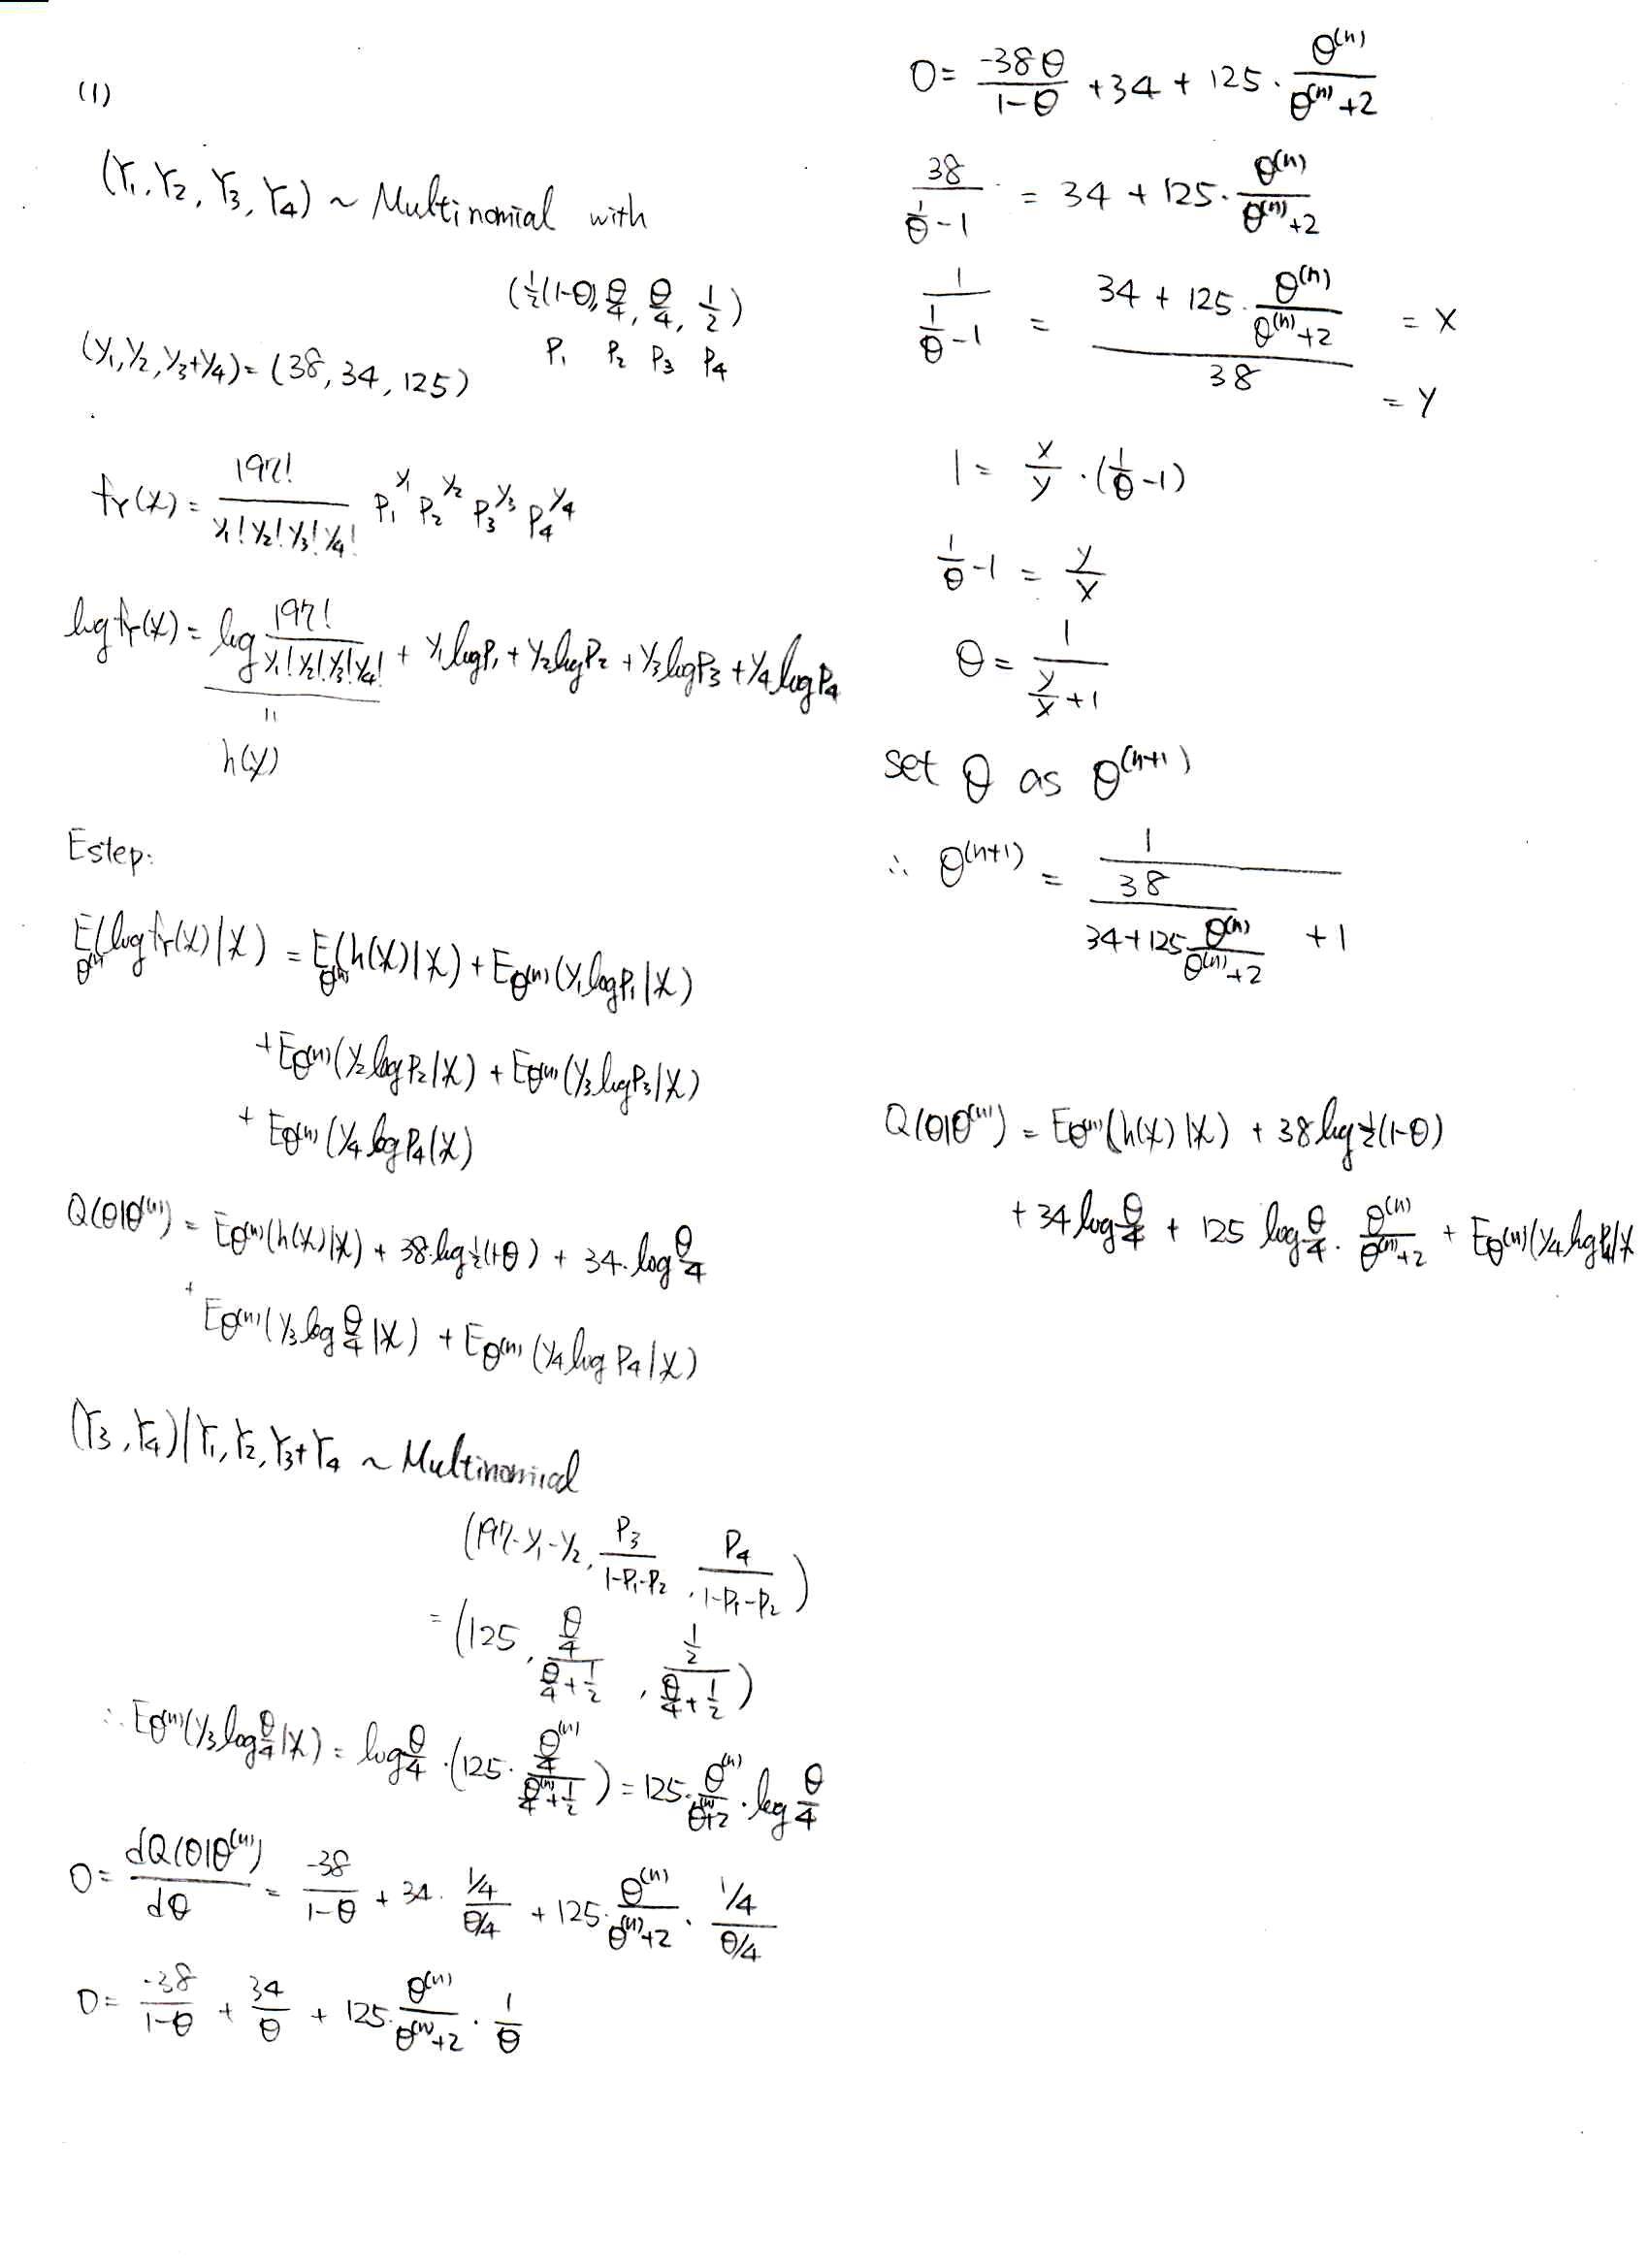 (1)
(Y₁, Y₂, Y₃, Y₄) ~ Multinomial with
(½(1-θ), θ/4, θ/4, ½)
P₁ P₂ P₃ P₄
(y₁, y₂, y₃+y₄) = (38, 34, 125)
f_Y(y) = 197! / (y₁! y₂! y₃! y₄!) P₁^y₁ P₂^y₂ P₃^y₃ P₄^y₄
log f_Y(y) = log 197! / (y₁! y₂! y₃! y₄!) + y₁ log P₁ + y₂ log P₂ + y₃ log P₃ + y₄ log P₄
"
h(y)
E step:
E_θ⁽ⁿ⁾(log f_Y(y) | x) = E_θ⁽ⁿ⁾(h(y) | x) + E_θ⁽ⁿ⁾(y₁ log P₁ | x)
+ E_θ⁽ⁿ⁾(y₂ log P₂ | x) + E_θ⁽ⁿ⁾(y₃ log P₃ | x)
+ E_θ⁽ⁿ⁾(y₄ log P₄ | x)
Q(θ|θ⁽ⁿ⁾) = E_θ⁽ⁿ⁾(h(y) | x) + 38·log ½(1-θ) + 34·log θ/4
+ E_θ⁽ⁿ⁾(y₃ log θ/4 | x) + E_θ⁽ⁿ⁾(y₄ log P₄ | x)
(Y₃, Y₄) | Y₁, Y₂, Y₃+Y₄ ~ Multinomial
(197-y₁-y₂, P₃/(1-P₁-P₂), P₄/(1-P₁-P₂))
= (125, (θ/4)/(θ/4+½), (½)/(θ/4+½))
∴ E_θ⁽ⁿ⁾(y₃ log θ/4 | x) = log θ/4 · (125 · (θ⁽ⁿ⁾/4)/(θ⁽ⁿ⁾/4+½)) = 125 · θ⁽ⁿ⁾/(θ⁽ⁿ⁾+2) · log θ/4
0 = dQ(θ|θ⁽ⁿ⁾)/dθ = -38/(1-θ) + 34 · (1/4)/(θ/4) + 125 · θ⁽ⁿ⁾/(θ⁽ⁿ⁾+2) · (1/4)/(θ/4)
0 = -38/(1-θ) + 34/θ + 125 · θ⁽ⁿ⁾/(θ⁽ⁿ⁾+2) · 1/θ
0 = -38θ/(1-θ) + 34 + 125 · θ⁽ⁿ⁾/(θ⁽ⁿ⁾+2)
38/(1/θ - 1) = 34 + 125 · θ⁽ⁿ⁾/(θ⁽ⁿ⁾+2)
1/(1/θ - 1) = (34 + 125 · θ⁽ⁿ⁾/(θ⁽ⁿ⁾+2)) / 38 = X
= Y
1 = X/Y · (1/θ - 1)
1/θ - 1 = Y/X
θ = 1/(Y/X + 1)
set θ as θ⁽ⁿ⁺¹⁾
∴ θ⁽ⁿ⁺¹⁾ = 1 / (38/(34+125 θ⁽ⁿ⁾/(θ⁽ⁿ⁾+2)) + 1)
Q(θ|θ⁽ⁿ⁾) = E_θ⁽ⁿ⁾(h(y) | x) + 38 log ½(1-θ)
+ 34 log θ/4 + 125 log θ/4 · θ⁽ⁿ⁾/(θ⁽ⁿ⁾+2) + E_θ⁽ⁿ⁾(y₄ log P₄ | x